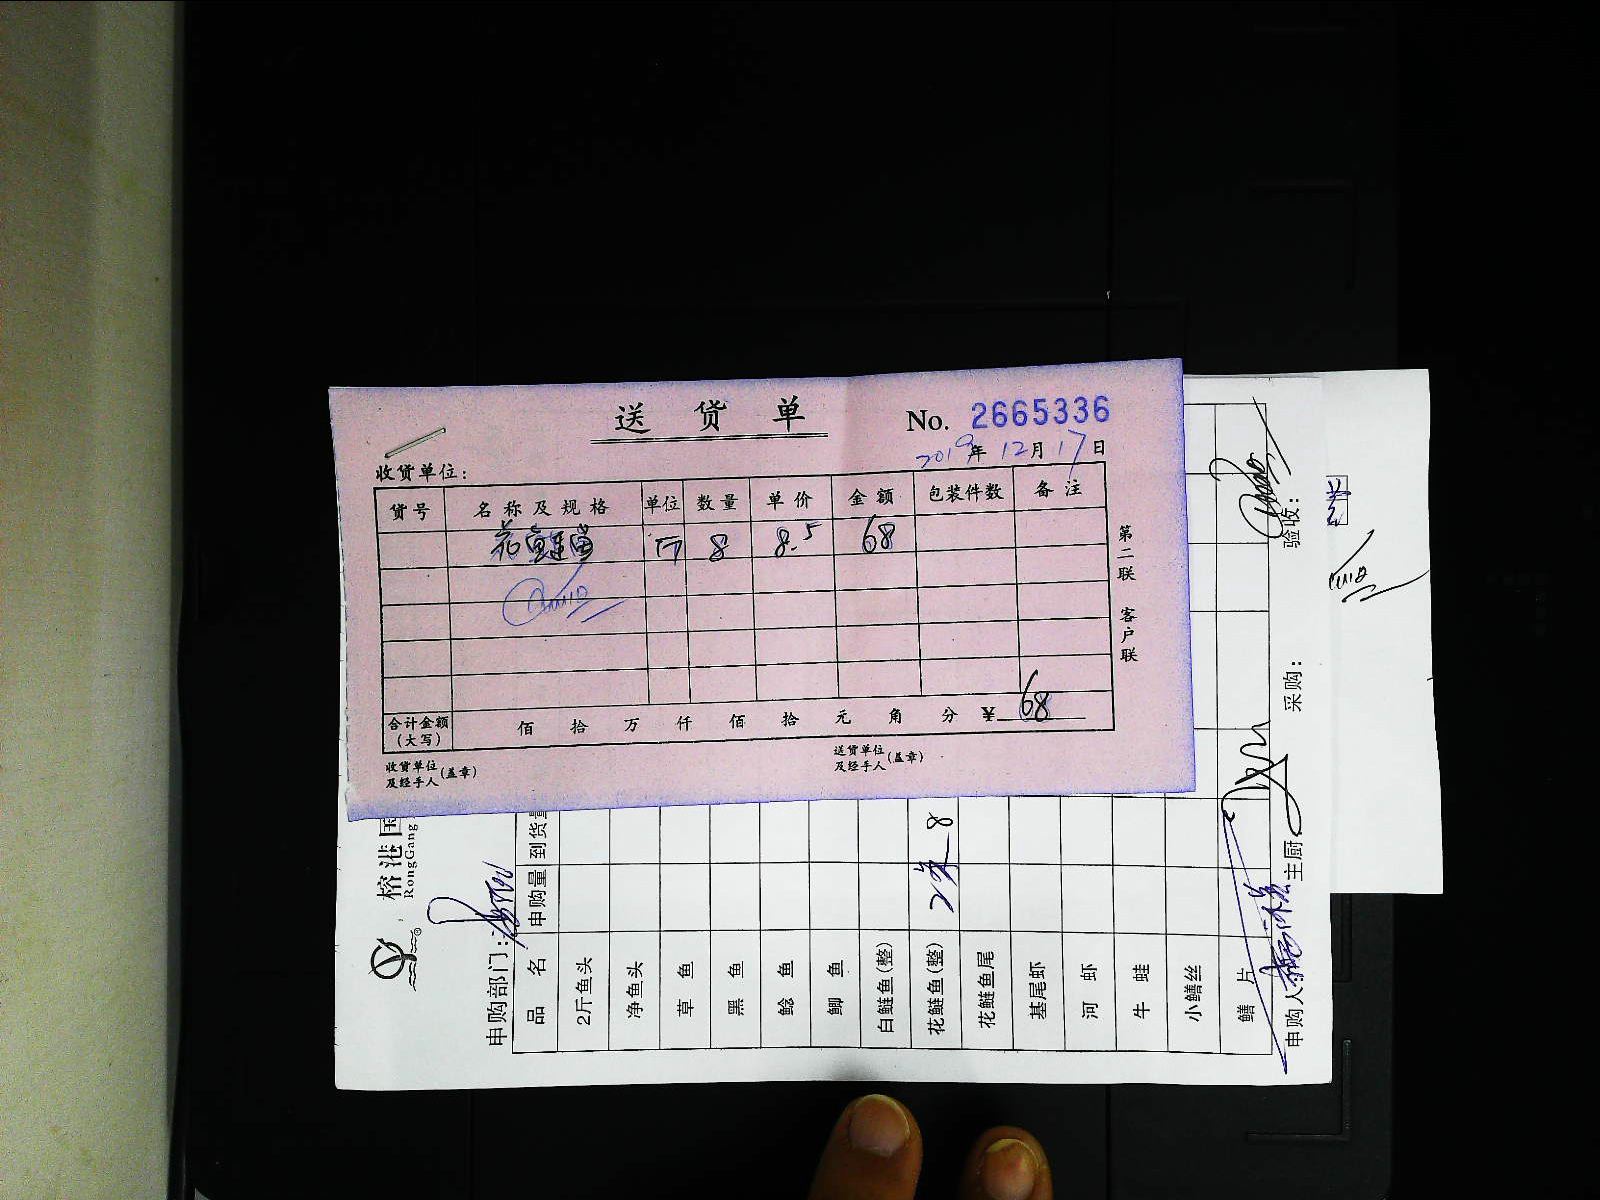 送 货 单 No. 2665336
2019年 12月 17日
收货单位:
货号 名称及规格 单位 数量 单价 金额 包装件数 备注
花鲢鱼 斤 8 8.5 68
合计金额(大写) 佰 拾 万 仟 佰 拾 元 角 分 ¥ 68
收货单位及经手人(盖章) 送货单位及经手人(盖章)
第二联 客户联
榕港国
RongGang
申购部门:
品 名 申购量 到货量
2斤鱼头
净鱼头
草 鱼
黑 鱼
鲶 鱼
鲫 鱼
白鲢鱼(整)
花鲢鱼(整) 2条 8
花鲢鱼尾
基尾虾
河 虾
牛 蛙
小鳝丝
鳝 片
申购人 主厨 采购: 验收: